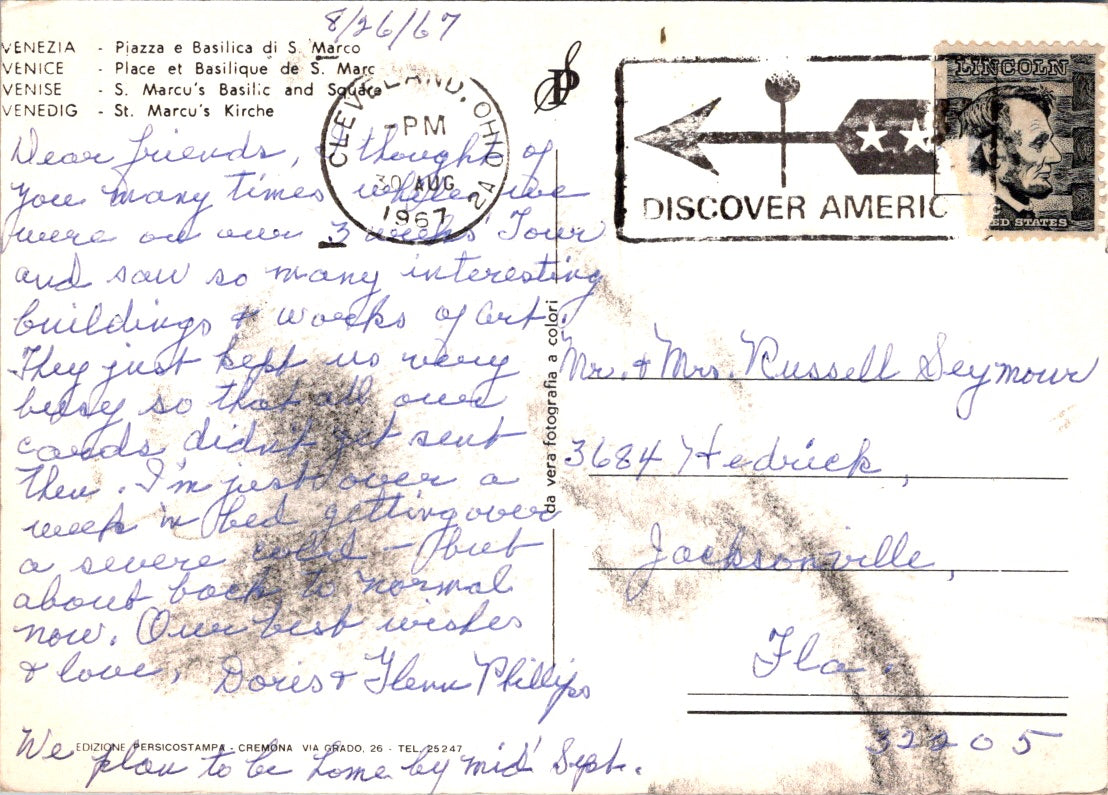 8/26/67
VENEZIA - Piazza e Basilica di S. Marco
VENICE - Place et Basilique de S. Marc
VENISE - S. Marcu's Basilic and Square
VENEDIG - St. Marcu's Kirche
CLEVELAND, OHIO
PM
30 AUG
1967
2A
DISCOVER AMERIC
LINCOLN
ED STATES
Dear friends, I thought of
you many times where we
were on our 3 weeks Tour
and saw so many interesting
buildings & works of art.
They just kept us very
busy so that all our
cards didn't get sent
then. I'm just over a
week in bed getting over
a severe cold - but
about back to normal
now. Our best wishes
& love, Doris & Glenn Phillips
We plan to be home by mid Sept.
da vera fotografia a colori
Mr. & Mrs. Russell Seymour
3684 Hedrick,
Jacksonville,
Fla.
32205
EDIZIONE PERSICOSTAMPA - CREMONA VIA GRADO, 26 - TEL. 25247